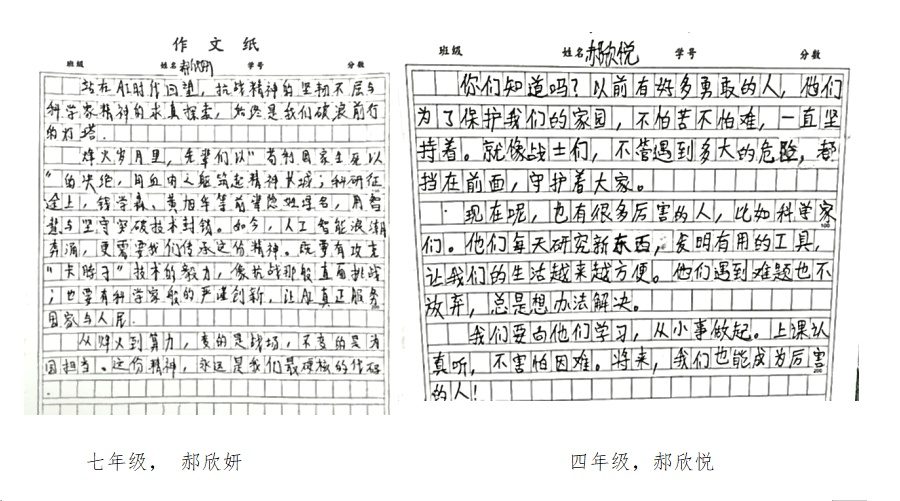 作文纸
班级 姓名 郝欣妍 学号 分数
站在AI时代回望，抗战精神的坚韧不屈与
科学家精神的求真探索，始终是我们破浪前行
的灯塔。
烽火岁月里，先辈们以“苟利国家生死以
”的决绝，用血肉之躯筑起精神长城；科研征
途上，钱学森、黄旭华等前辈隐姓埋名，用智
慧与坚守突破技术封锁。如今，人工智能浪潮
奔涌，更需要我们传承这份精神。既要有攻克
“卡脖子”技术的毅力，像抗战那般直面挑战
；也要有科学家般的严谨创新，让AI真正服务
国家与人民。
从烽火到算力，变的是战场，不变的是为
国担当。这份精神，永远是我们最硬核的代码
.
班级 姓名 郝欣悦 学号 分数
你们知道吗？以前有好多勇敢的人，他们
为了保护我们的家园，不怕苦不怕难，一直坚
持着。就像战士们，不管遇到多大的危险，都
挡在前面，守护着大家。
现在呢，也有很多厉害的人，比如科学家
100
们。他们每天研究新东西，发明有用的工具，
让我们的生活越来越方便。他们遇到难题也不
放弃，总是想办法解决。
我们要向他们学习，从小事做起。上课认
真听，不害怕困难。将来，我们也能成为厉害
200
的人！
七年级， 郝欣妍
四年级，郝欣悦